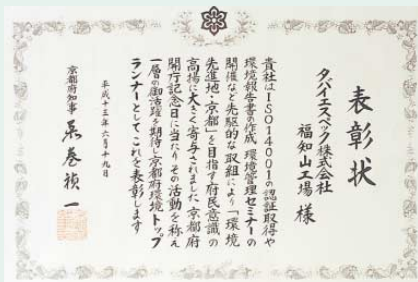 表彰状
タバイエスペック株式会社
福知山工場 様
貴社はISO14001の認証取得や
環境報告書の作成、環境管理セミナーの
開催など先駆的な取組により「環境
先進地・京都」を目指す府民意識の
高揚に大きく寄与されました 京都府
開庁記念日に当たりその活動を称え
一層の御活躍を期待し京都府環境トップ
ランナーとしてこれを表彰します
平成十三年六月十九日
京都府知事 荒巻禎一